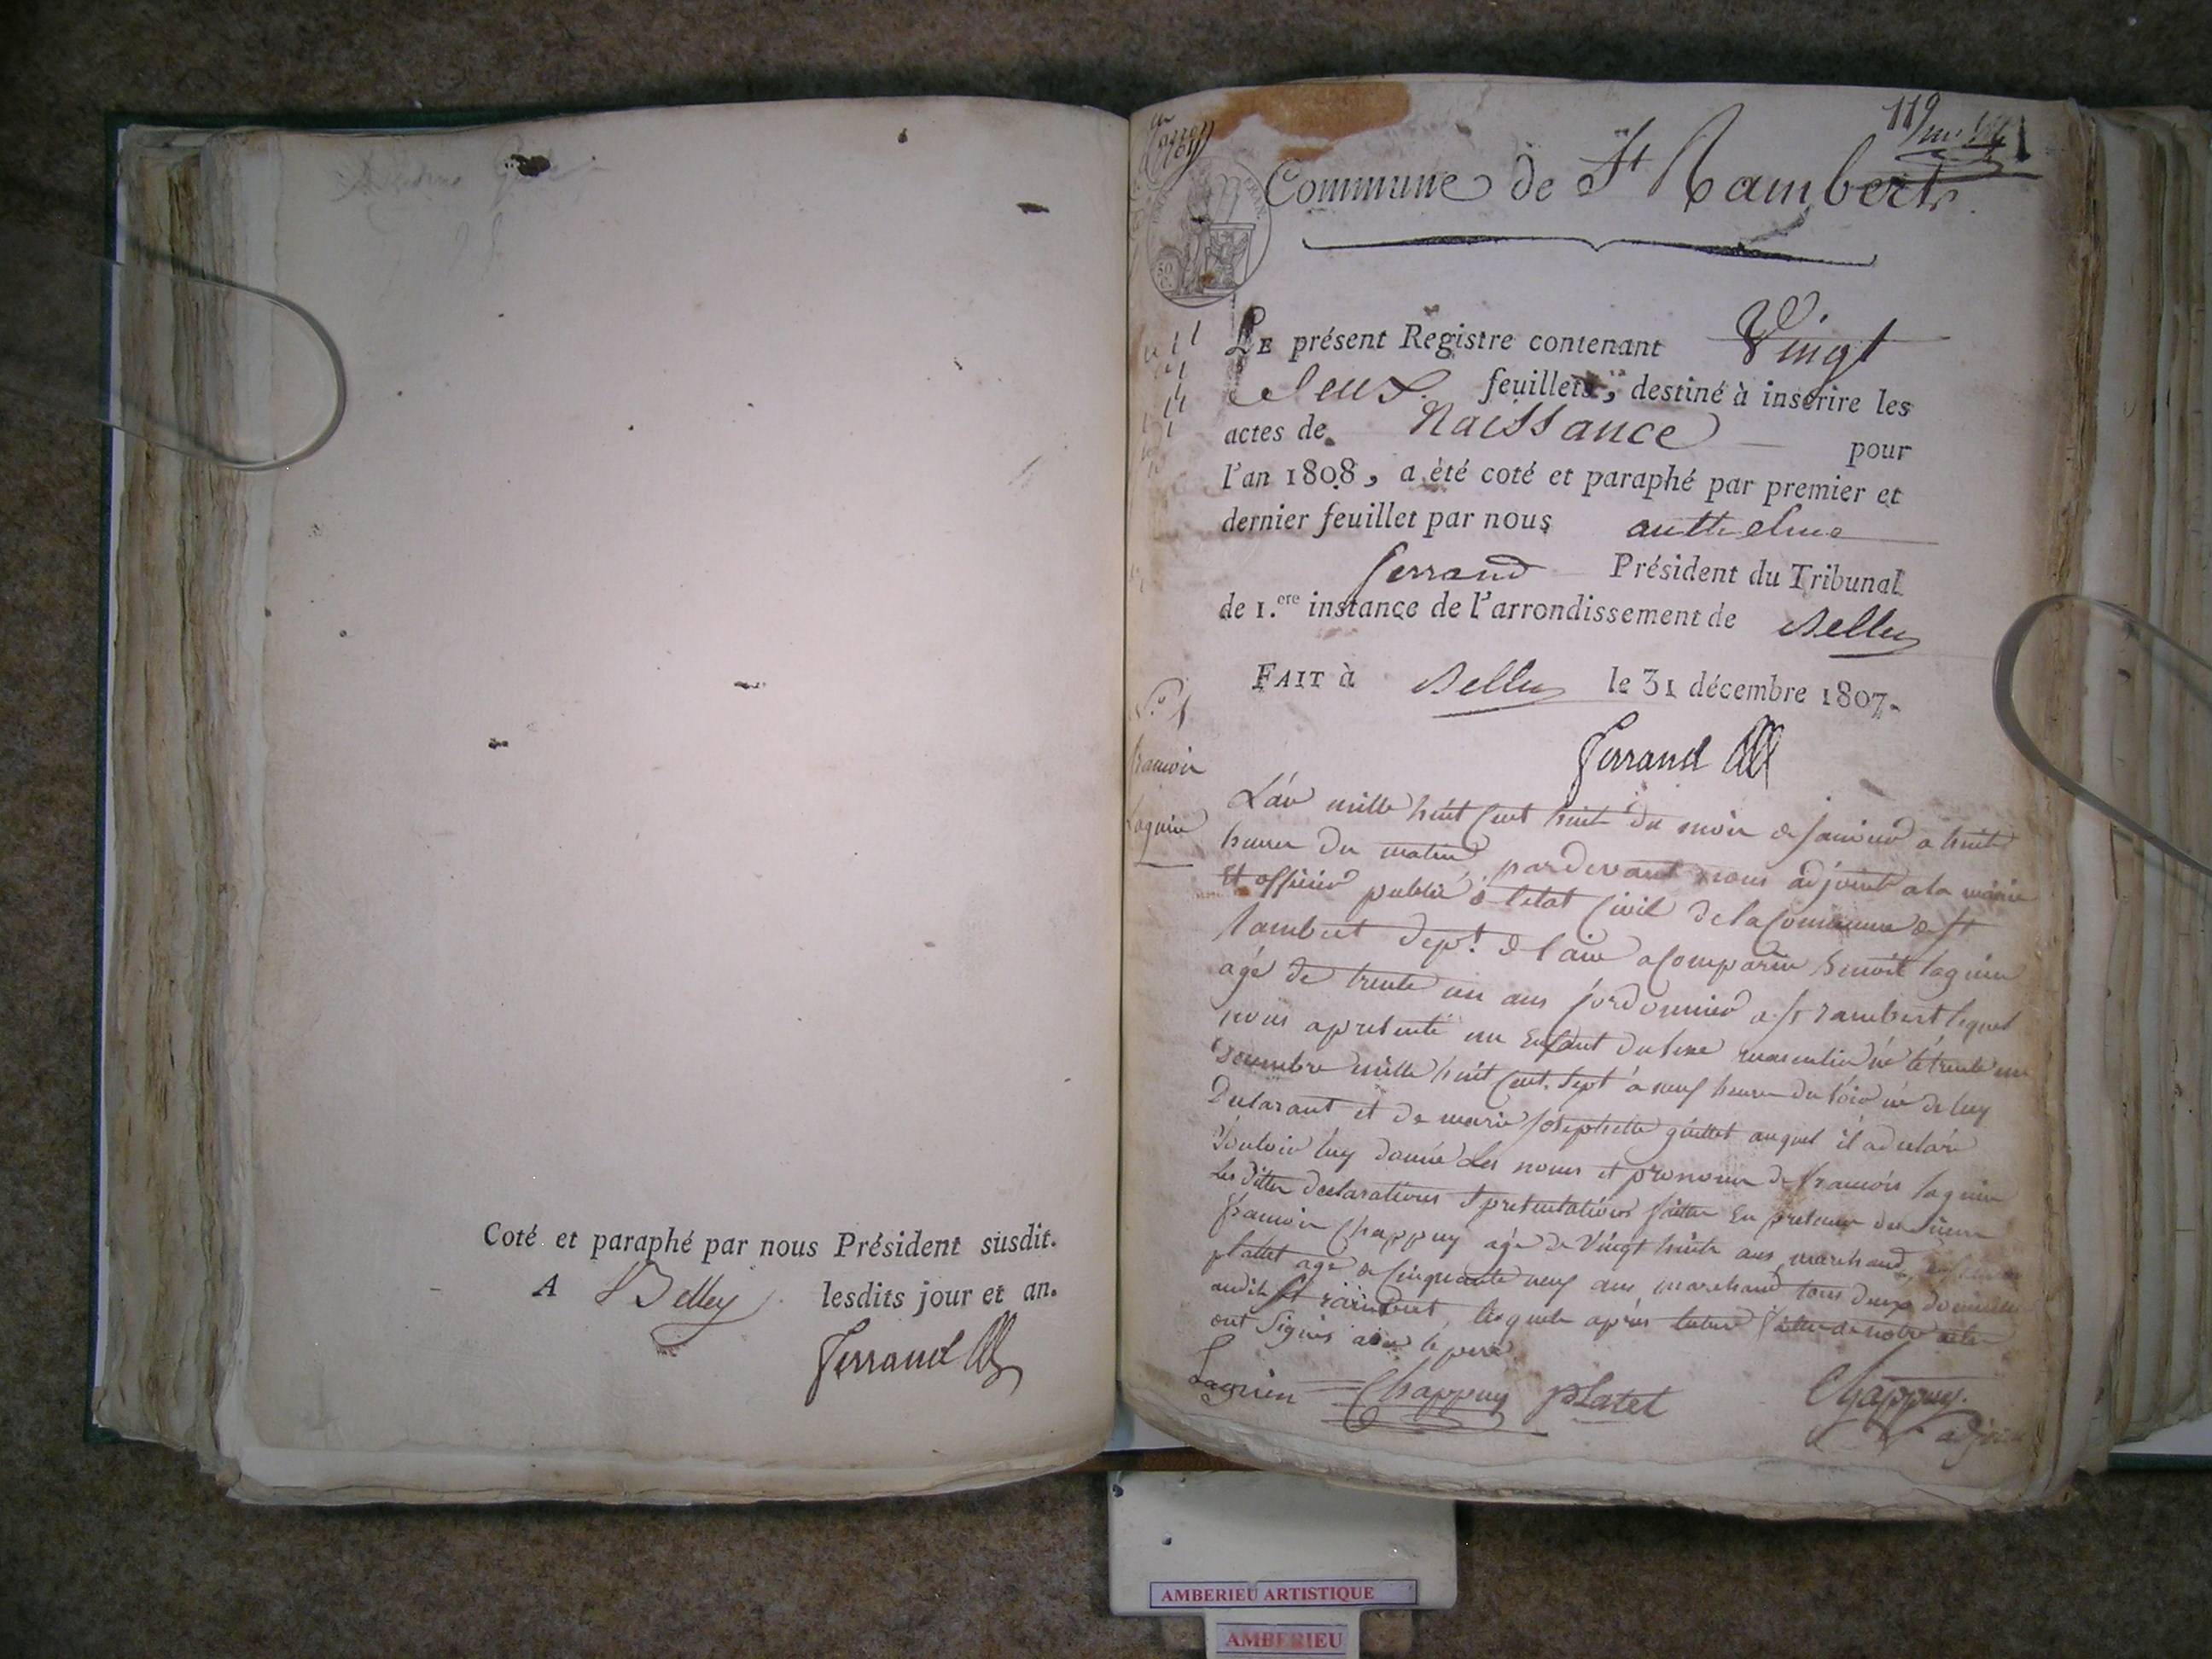 Coté et paraphé par nous Président susdit.
A Belley lesdits jour et an.
Ferrand
119
Commune de St Rambert
LE présent Registre contenant Vingt
deux feuillets, destiné à insérire les
actes de Naissance pour
l'an 1808, a été coté et paraphé par premier et
dernier feuillet par nous anthelme
ferrand Président du Tribunal
de 1.ere instance de l'arrondissement de Belley
FAIT à Belley le 31 décembre 1807.
Ferrand
francois
Laguin
L'an mille huit cent huit du mois de janvier a huit
heures du matin, pardevant nous adjoint a la mairie
et officier public de l'etat civil de la commune de st
rambert dept. de l'ain a comparu benoit laguin
agé de trente un ans cordonnier a st rambert lequel
nous a presenté un enfant du sexe masculin né le trente un
decembre mille huit cent sept à neuf heures du soir né de luy
declarant et de marie josephette guillet auquel il a declaré
vouloir luy donné les noms et prenoms de francois laguin
les dittes declarations et presentations faittes en presence du sieurs
francois Chappuy agé de vingt huit ans marchand
plattet agé de cinquante neuf ans marchand tous deux
audit st rambert, lesquels après lecture
ont signés avec le pere
Laguin Chappuy platet Chappuy
adjoint
AMBERIEU ARTISTIQUE
AMBERIEU